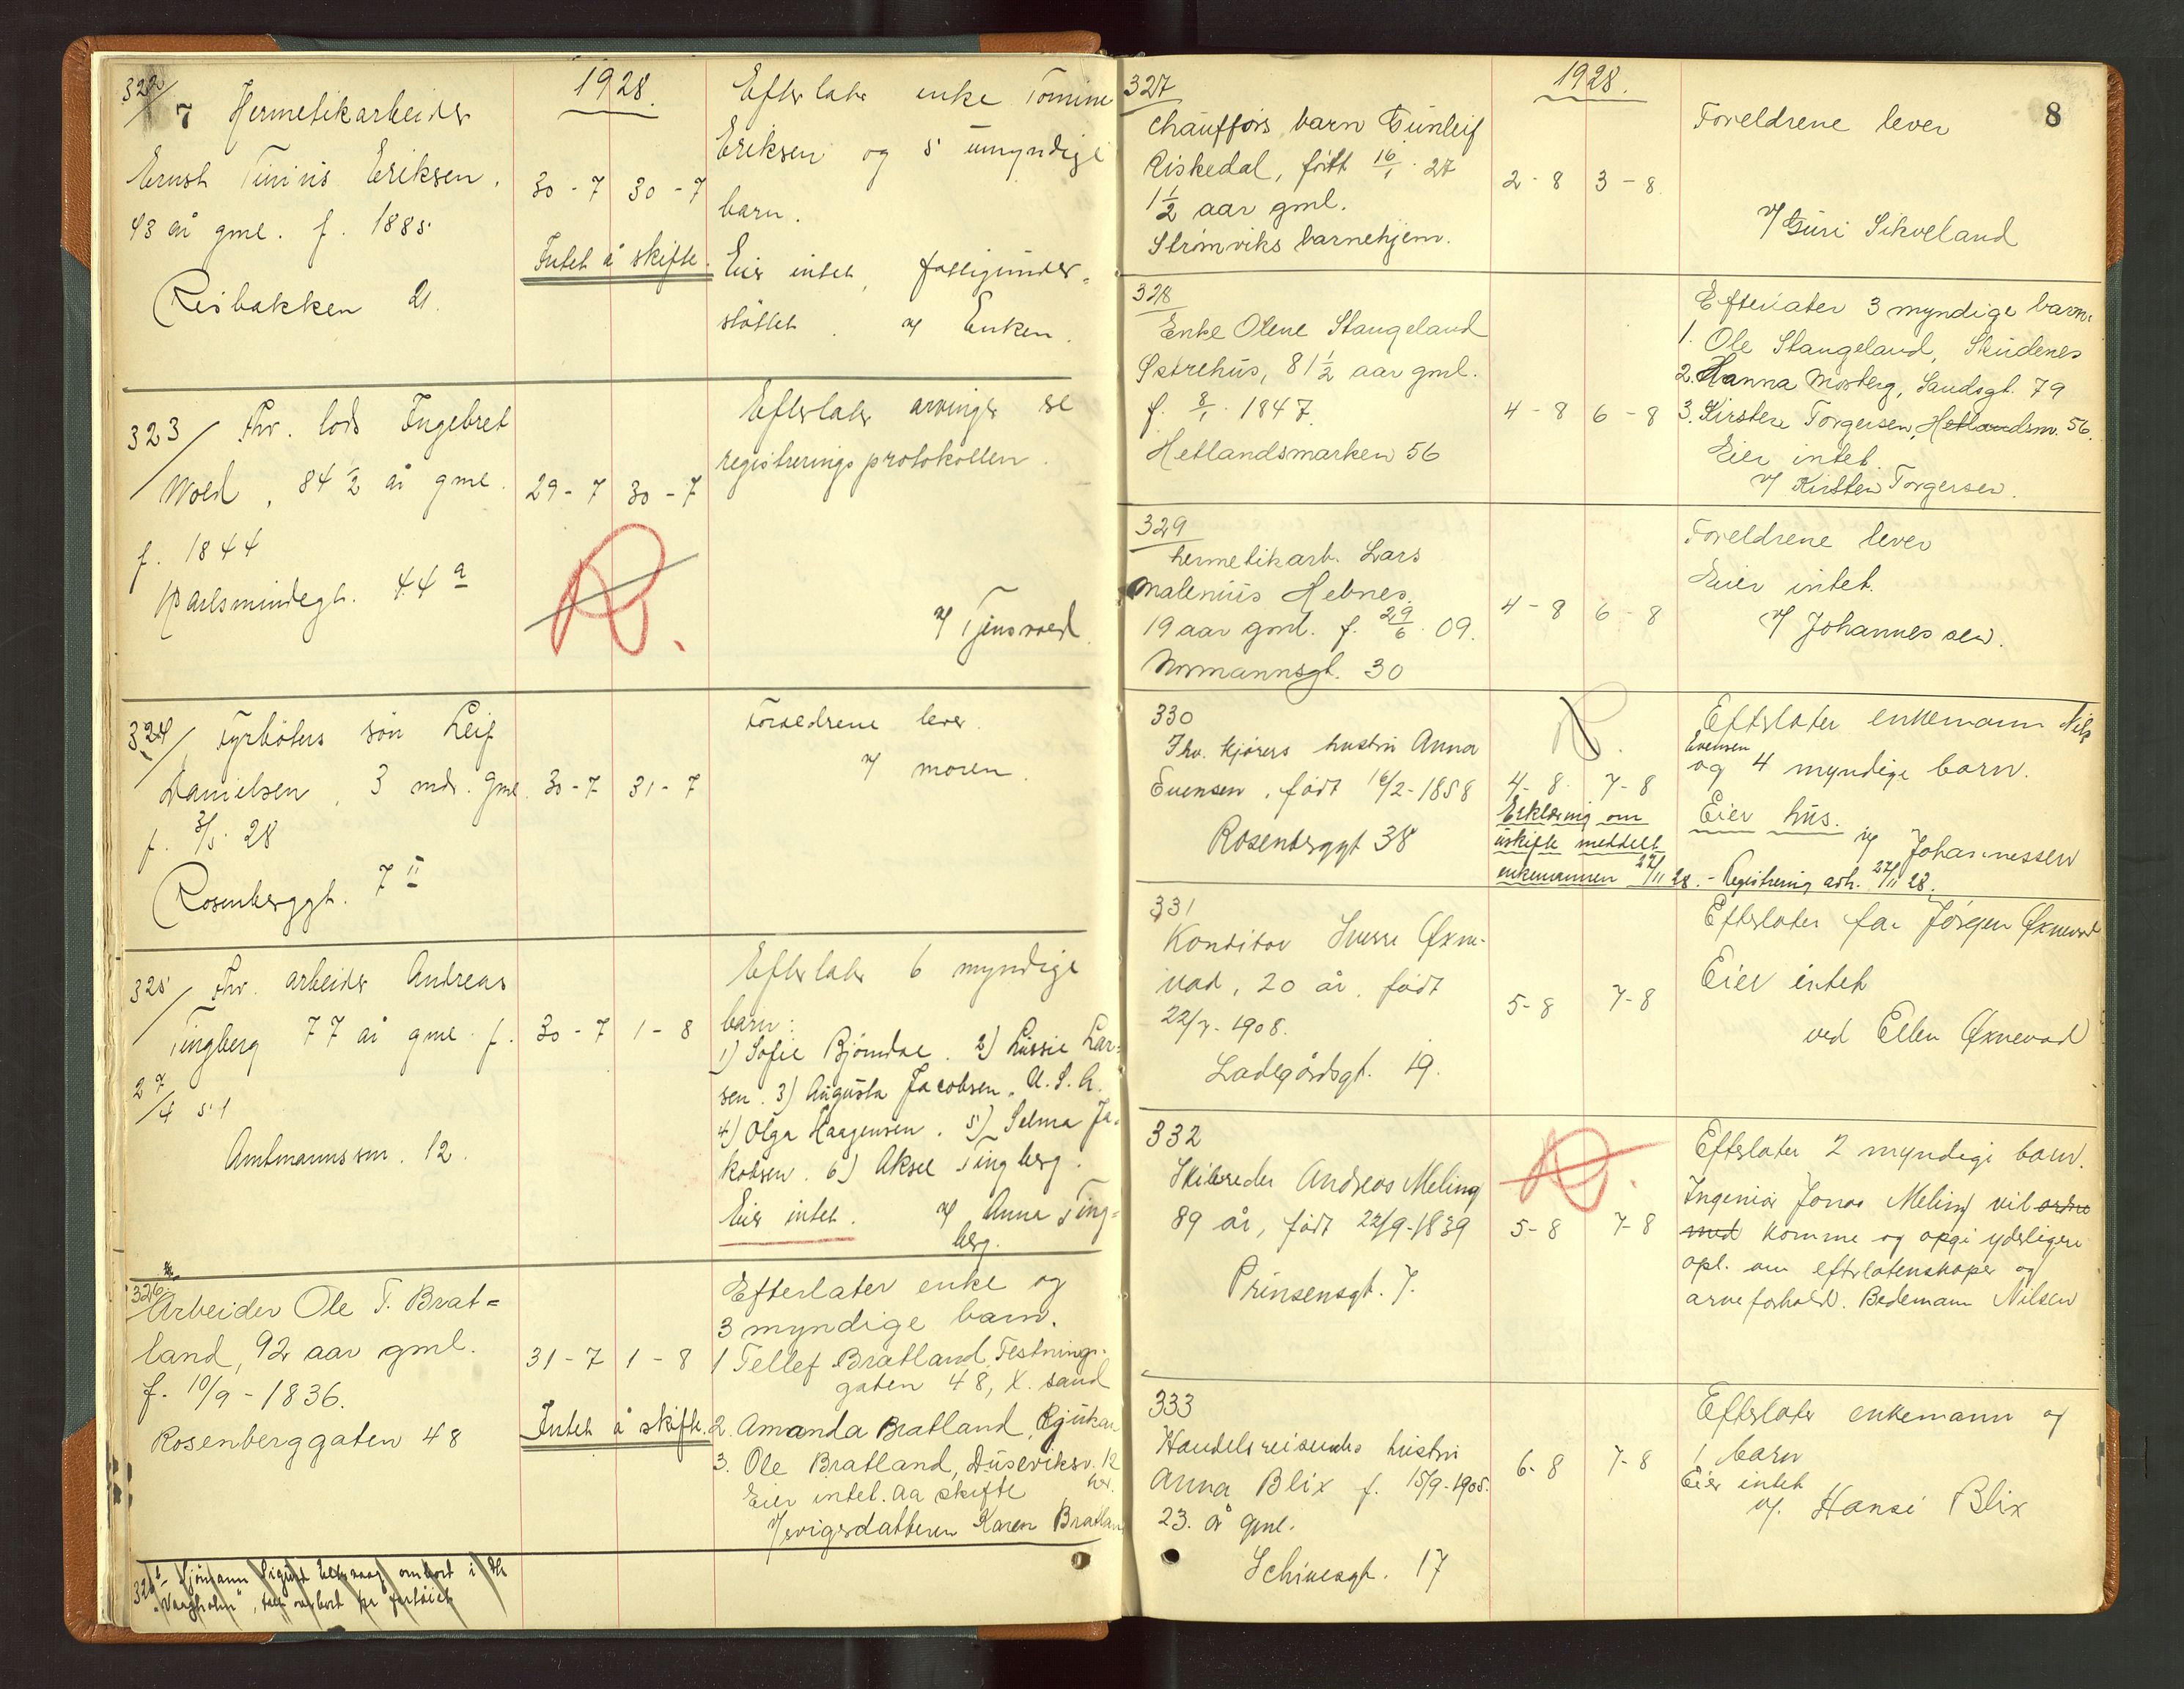 322/
7 Hermetikarbeider
Ernst Tinius Eriksen.
43 år gml. f. 1885.
Risbakken 21.
1928.
30 - 7 30 - 7
Intet å skifte.
Efterlater enke Tomine
Eriksen og 5 umyndige
barn.
Eier intet, fattigunder=
støttet. v/ Enken.
323/ Fhv. lods Ingebret
Wold, 84 ½ år gml.
f. 1844
Karlsmindegt. 44 a
29 - 7 30 - 7
R.
Efterlater arvinger se
registreringsprotokollen.
v/ Tjensvold
324/ Fyrbøters søn Leif
Danielsen, 3 mdr. gml.
f. 3/5 28
Rosenberggt. 7 II
30 - 7 31 - 7
Foreldrene lever.
v/ moren.
325/ Fhv. arbeider Andreas
Tingberg 77 år gml. f.
27/4 51
Amtmannssm. 12.
30 - 7 1 - 8
Efterlater 6 myndige
barn:
1) Sofie Bjørndal. 2) Lussie Lar-
sen. 3) Augusta Jacobsen, U.S.A.
4) Olga Haagensen. 5) Selma Ja-
kobsen. 6) Aksel Tingberg.
Eier intet. v/ Anna Ting=
berg.
326
Arbeider Ole T. Brat=
land, 92 aar gml.
f. 10/9 - 1836.
Rosenberggaten 48
31 - 7 1 - 8
Intet å skifte.
Efterlater enke og
3 myndige barn.
1 Tellef Bratland, Festnings-
gaten 48, K. sand
2. Amanda Bratland, Rjukan
3. Ole Bratland, Duseviksv. 12
her.
Eier intet. aa skifte
v/ svigerdatteren Karen Bratland
326 Sjømann Sigurd ombord i
"Vargholm",
327
chaufførs barn Gunleif
Riskedal, født 16/1. 27
1 ½ aar gml.
Strømviks barnehjem.
1928.
2 - 8 3 - 8
8
Foreldrene lever
v/ Guri Sikveland
328
Enke Olene Stangeland
Sætrehus, 81 ½ aar gml.
f. 8/1. 1847.
Hetlandsmarken 56
4 - 8 6 - 8
Efterlater 3 myndige barn.
1. Ole Stangeland, Skudenes
2. Hanna Mosberg, Sandsgt. 79
3. Kirsten Torgersen, Hetlandsm. 56.
Eier intet.
v/ Kirsten Torgersen.
329
hermetikarb. Lars
Malenius Hebnes.
19 aar gml. f. 29/6. 09.
Normannsgt. 30
4 - 8 6 - 8
Foreldrene lever
Eier intet.
v/ Johannessen.
330
Fhv. kjørers hustru Anna
Evensen, født 16/2-1858
Rosenberggt 38
R.
4 - 8 7 - 8
Erklæring om
uskifte meddelt
enkemannen 27/11 28. - Registrering avh. 27/11 28.
Efterlater enkemann Nils
Evensen
og 4 myndige barn.
Eier hus.
v/ Johannessen
331
Konditor Sverre Øxne-
vad, 20 år, født
22/7-1908.
Ladegårdsgt. 19.
5 - 8 7 - 8
Efterlater far Jørgen Øxnevad
Eier intet
ved Ellen Øxnevad
332
Skibsreder Andreas Meling
89 år, født 22/9-1839
Prinsensgt. 7.
R.
5 - 8 7 - 8
Efterlater 2 myndige barn.
Ingeniør Jonas Meling vil ordne
med komme og opgi yderligere
opl. om efterlatenskaper og
arveforhold. Bedemann Nilsen
333
Handelsreisendes hustru
Anna Blix f. 15/9-1905.
23. år gml.
Schivesgt. 17
6 - 8 7 - 8
Efterlater enkemann og
1 barn
Eier intet
v/. Hansi Blix